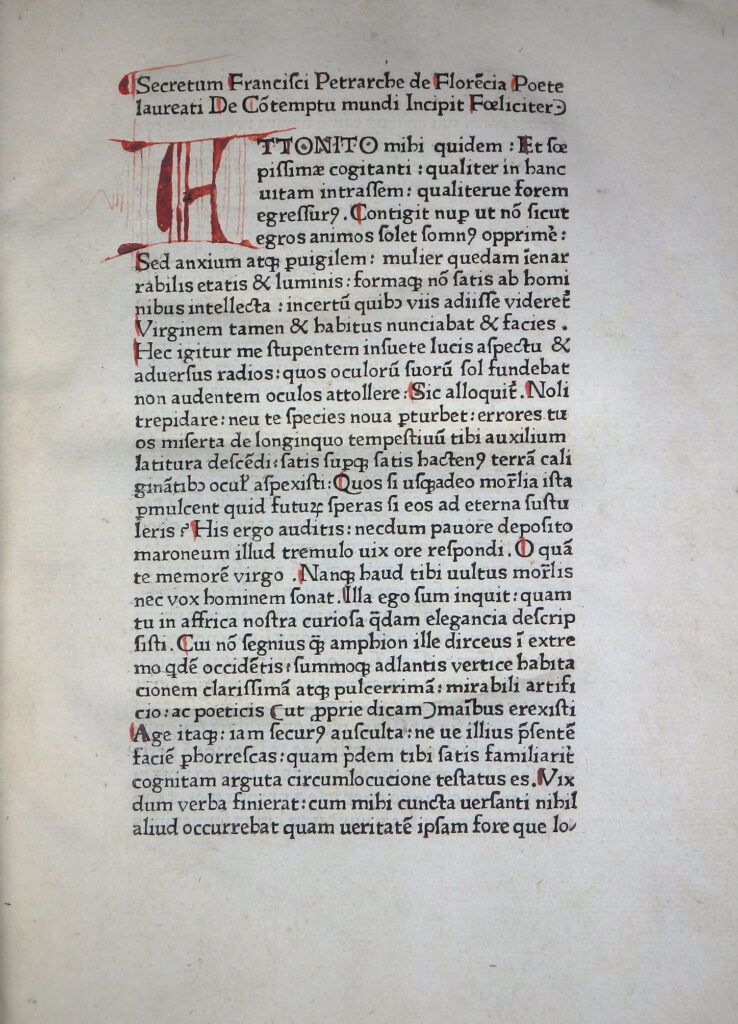 Secretum Franciſci Petrarche de Florēcia Poete
laureati De Cōtemptu mundi Incipit Fœliciter
ATTONITO mihi quidem : Et ſœ
piſſimæ cogitanti : qualiter in hanc
uitam intraſſem : qualiterue forem
egreſſurꝰ . Contigit nuꝑ ut nō ſicut
egros animos ſolet ſomnꝰ opprimē :
Sed anxium atqꝫ ꝑuigilem : mulier quedam īenar
rabilis etatis & luminis : formaqꝫ nō ſatis ab homi
nibus intellecta : incertū quibꝰ viis adiiſſe videret̄
Virginem tamen & habitus nunciabat & facies .
Hec igitur me ſtupentem inſuete lucis aſpectu &
aduerſus radios : quos oculorū ſuorū ſol fundebat
non audentem oculos attollere : Sic alloquit̄ . Noli
trepidare : neu te ſpecies noua ꝑturbet : errores tu
os miſerta de longinquo tempeſtiuū tibi auxilium
latitura deſcēdi : ſatis ſupqꝫ ſatis hactenꝰ terrā cali
ginātibꝰ ocul̄ aſpexiſti : Quos ſi uſqꝫadeo mor̄lia iſta
ꝑmulcent quid futuꝝ ſperas ſi eos ad eterna ſuſtu
leris ? His ergo auditis : necdum pauore depoſito
maroneum illud tremulo uix ore reſpondi . O quā
te memorē virgo . Nanqꝫ haud tibi uultus mor̄lis
nec vox hominem ſonat . Illa ego ſum inquit : quam
tu in affrica noſtra curioſa q̄dam elegancia deſcrip
ſiſti . Cui nō ſegnius q̄ꝫ amphion ille dirceus ī extre
mo qdē occidētis : ſummoqꝫ adlantis vertice habita
cionem clariſſimā atqꝫ pulcerrimā : mirabili artifi
cio : ac poeticis (ut ꝓprie dicam) maībus erexiſti
Age itaqꝫ : iam ſecurꝰ auſculta : ne ue illius p̄ſentē
faciē ꝑhorreſcas : quam p̄dem tibi ſatis familiarit̄
cognitam arguta circumlocucione teſtatus es . Vix
dum verba finierat : cum mihi cuncta uerſanti nihil
aliud occurrebat quam ueritatē ipſam fore que lo⸗